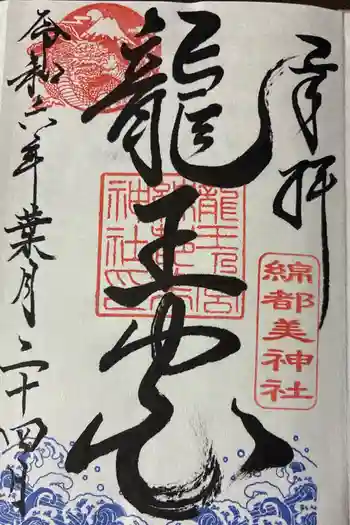 奉拝
綿都美神社
龍王宮
龍王宮
綿都美
神社印
令和六年葉月二十四日